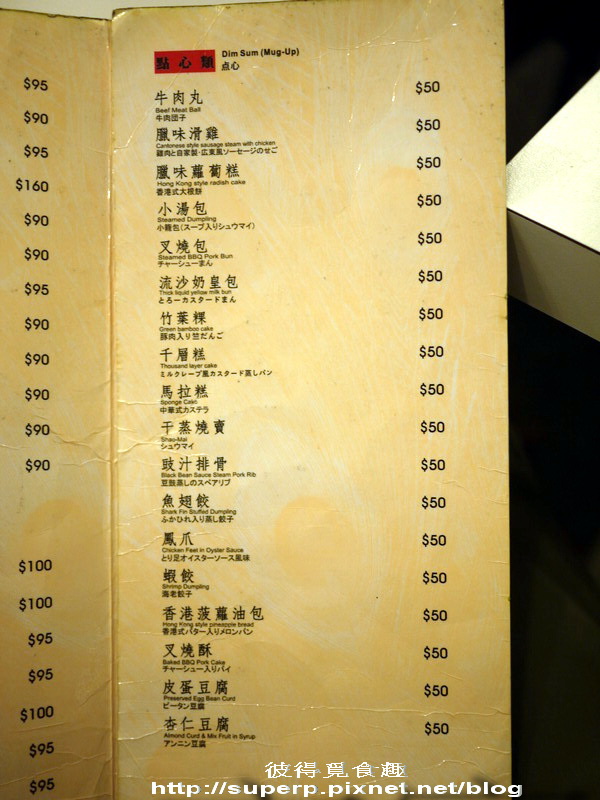 點心類
Dim Sum (Mug-Up)
点心
牛肉丸 $50
Beef Meat Ball
牛肉団子
臘味滑雞 $50
Cantonese style sausage steam with chicken
鷄肉と自家製・広東風ソーセージのせご
臘味蘿蔔糕 $50
Hong Kong style radish cake
香港式大根餅
小湯包 $50
Steamed Dumpling
小籠包(スープ入りシュウマイ)
叉燒包 $50
Steamed BBQ Pork Bun
チャーシューまん
流沙奶皇包 $50
Thick liquid yellow milk bun
とろーカスタードまん
竹葉粿 $50
Green bamboo cake
豚肉入り笠だんご
千層糕 $50
Thousand layer cake
ミルクレープ風カスタード蒸しパン
馬拉糕 $50
Sponge Cake
中華式カステラ
干蒸燒賣 $50
Shao-Mai
シュウマイ
豉汁排骨 $50
Black Bean Sauce Steam Pork Rib
豆鼓蒸しのスペアリブ
魚翅餃 $50
Shark Fin Stuffed Dumpling
ふかひれ入り蒸し餃子
鳳爪 $50
Chicken Feet in Oyster Sauce
とり足オイスターソース風味
蝦餃 $50
Shrimp Dumpling
海老餃子
香港菠蘿油包 $50
Hong Kong style pineapple bread
香港式バター入りメロンパン
叉燒酥 $50
Baked BBQ Pork Cake
チャーシュー入りパイ
皮蛋豆腐 $50
Preserved Egg Bean Curd
ピータン豆腐
杏仁豆腐 $50
Almond Curd & Mix Fruit in Syrup
アンニン豆腐
$95
$90
$95
$160
$90
$90
$95
$90
$90
$90
$90
$90
$100
$100
$95
$95
$100
$95
$95
彼得覓食趣
http://superp.pixnet.net/blog